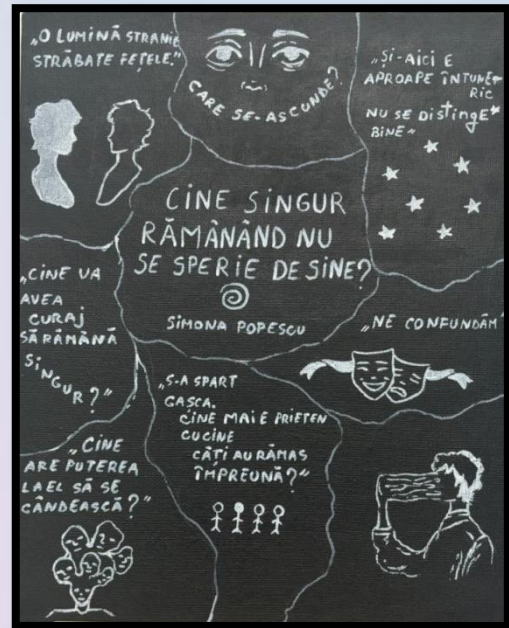 „O LUMINĂ STRANIE
STRĂBATE FEȚELE.”
CARE SE-ASCUNDE?
„ȘI-AICI E
APROAPE ÎNTUNE-
RIC
NU SE DISTINGE
BINE”
CINE SINGUR
RĂMÂNÂND NU
SE SPERIE DE SINE?
SIMONA POPESCU
„CINE VA
AVEA
CURAJ
SĂ RĂMÂNĂ
SINGUR?”
„NE CONFUNDĂM”
„S-A SPART
GAȘCA.
CINE MAI E PRIETEN
CU CINE
CÂȚI AU RĂMAS
ÎMPREUNĂ?”
„CINE
ARE PUTEREA
LA EL SĂ SE
GÂNDEASCĂ?”